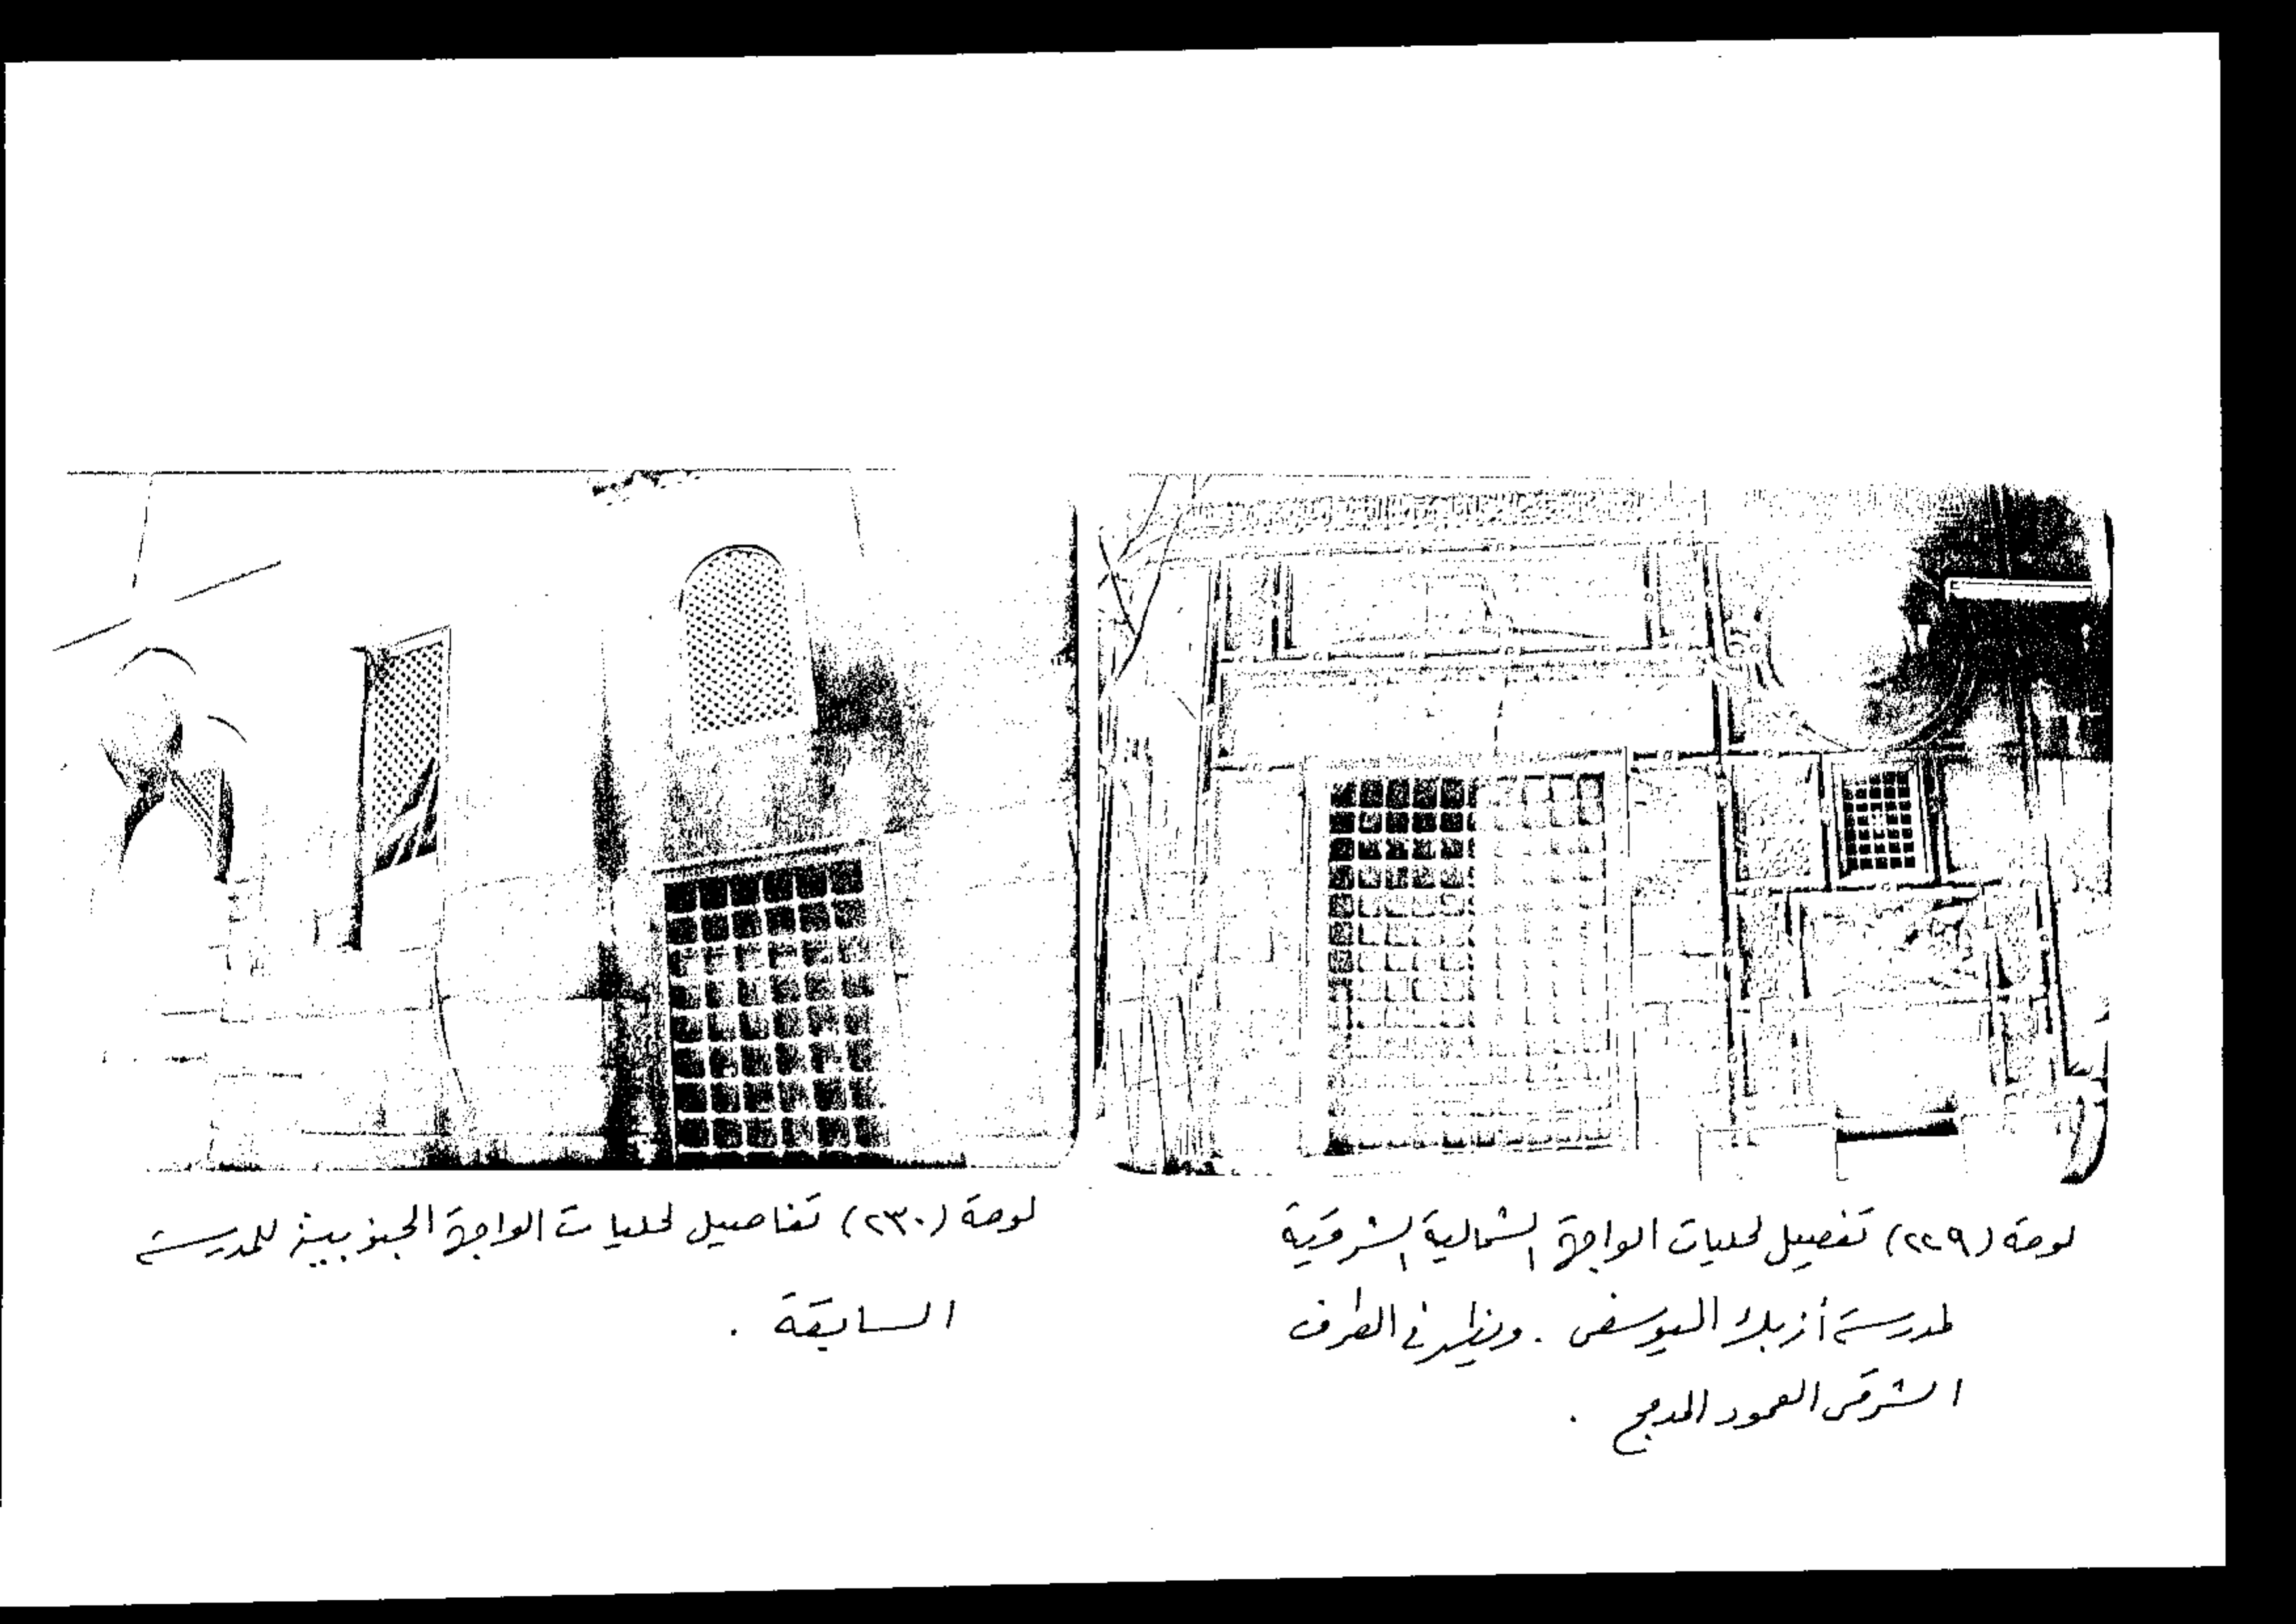 لوحة (٢٢٩) تفصيل لحليات الواجهة الشمالية الشرقية
لمدرسة أزبك اليوسفى . ويظهر فى الطرف
الشرقى العمود المدمج .
لوحة (٢٣٠) تفاصيل لحليات الواجهة الجنوبية للمدرسة
السابقة .